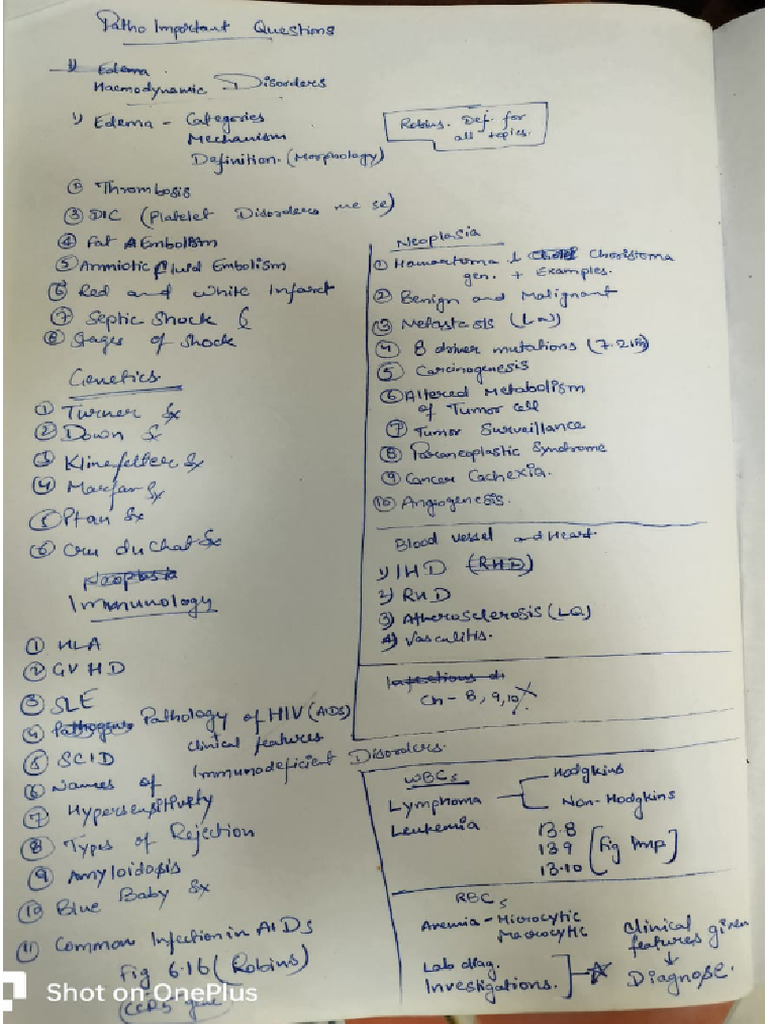 Patho Important Questions
1) Edema
Haemodynamic Disorders
1) Edema - Categories
Mechanism
Definition. (Morphology)
Robins. Def. for
all topics.
② Thrombosis
③ DIC (Platelet Disorders me se)
④ Fat Embolism
⑤ Ammiotic fluid Embolism
⑥ Red and white Infarct
⑦ Septic Shock
⑧ Stages of shock
Genetics.
① Turner Sx
② Down Sx
③ Klinefelter Sx
④ Marfan Sx
⑤ Ptau Sx
⑥ Cru du Chat Sx
Neoplasia
Immunology
① HLA
② GVHD
③ SLE
④ Pathogen Pathology of HIV (AIDs)
clinical features
⑤ SCID
⑥ Names of Immunodeficient Disorders.
⑦ Hypersensitivity
⑧ Types of Rejection
⑨ Amyloidosis
⑩ Blue Baby Sx
⑪ Common Infection in AIDs
Fig 6.16 (Robins)
Neoplasia
① Hamartoma & Choristoma
gen. + Examples.
② Benign and Malignant
③ Metastasis (LQ)
④ 8 driver mutations (7.21)
⑤ Carcinogenesis
⑥ Altered Metabolism
of Tumor cell
⑦ Tumor Surveillance
⑧ Paraneoplastic Syndrome
⑨ Cancer Cachexia.
⑩ Angiogenesis.
Blood vessel and Heart
1) IHD (RHD)
2) RHD
3) Atherosclerosis (LQ)
4) Vasculitis.
Infections di
Ch - 8, 9, 10 X
WBCs
Lymphoma
Hodgkins
Non-Hodgkins
Leukemia
13.8
13.9
13.10
[Fig Imp]
RBCs
Anemia - Microcytic
Macrocytic
Lab diag.
Investigations.
Clinical
features given
↓
Diagnose.
Shot on OnePlus